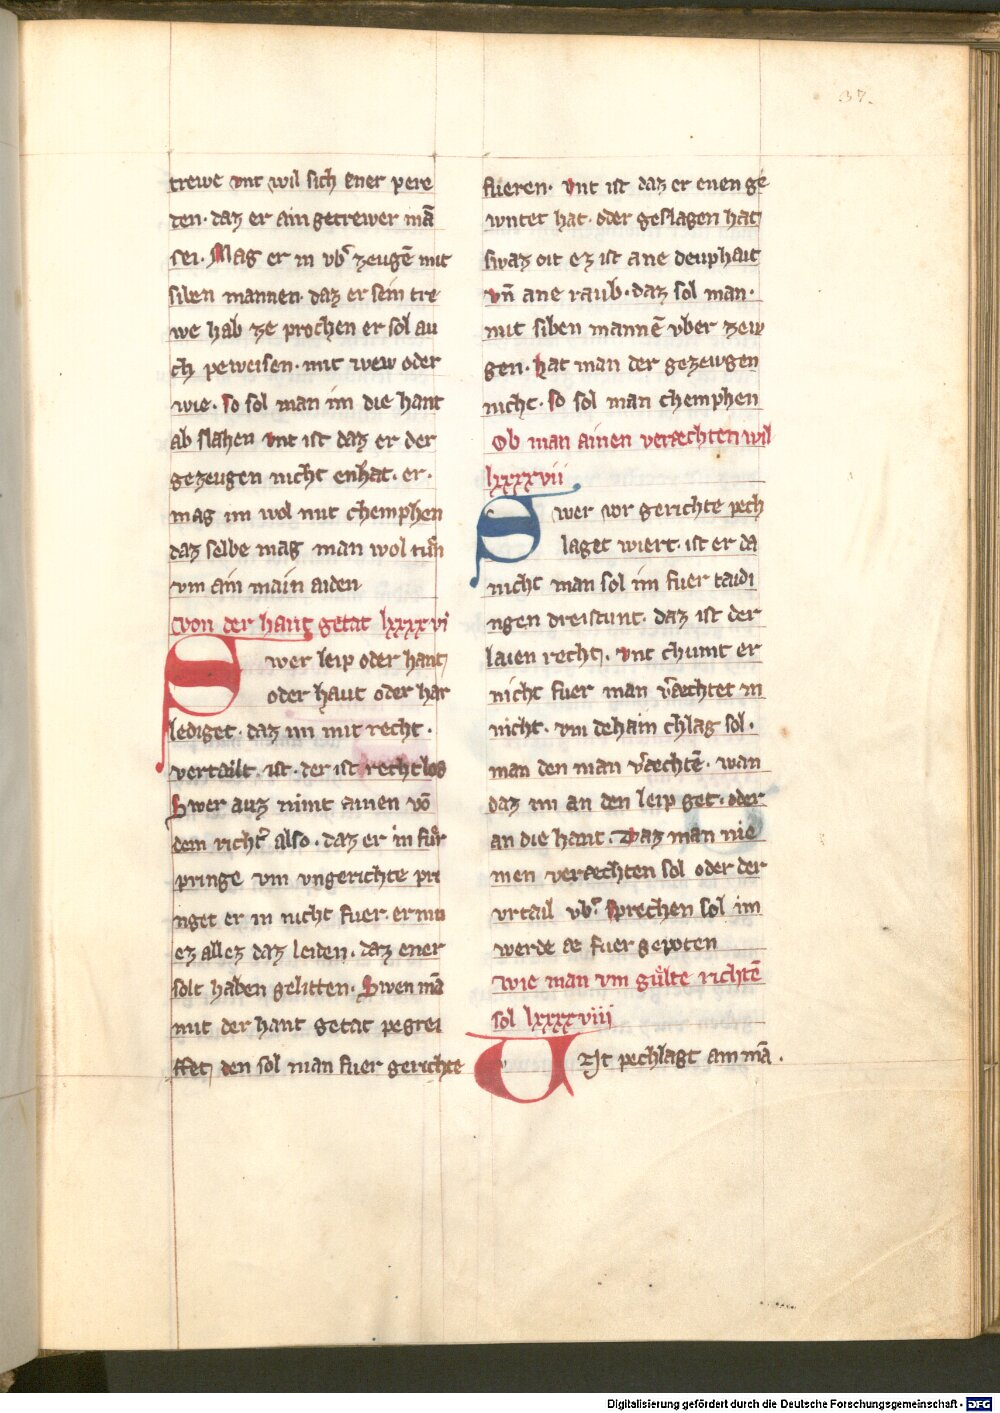 37.
trewe vnt wil sich ener pere
den · daz er ain getrewer mā
sei · Mag er in vb᷒ zeugē mit
siben mannen · daz er sein tre
we hab ze prochen er sol au
ch peweisen · mit wew oder
wie · so sol man im die hant
ab slahen vnt ist daz er der
gezeugen nicht enhat · er ·
mag im wol mit chemphen
daz selbe mag man wol tůn
vm ain main aiden
von der hant getat lxxxxvi
Swer leip oder hant
oder haut oder har
lediget · daz im mit recht ·
vertailt · ist · der ist rechtlos
Swer auz nimt ainen vō
dem richt᷒ also · daz er in fůr
pringe vm vngerichte pri
nget er in nicht fuer · er mu
ez allez daz leiden · daz ener
solt haben gelitten · Swen mā
mit der hant getat pegrei
ffet den sol man fuer gerichte
fueren · vnt ist daz er enen ge
wntet hat · oder geslagen hat
swaz eit ez ist ane deuphait
vn̄ ane raub · daz sol man ·
mit siben mannē vber zew
gen · hat man der gezewgen
nicht · so sol man chemphen
Ob man ainen veræchten wil
lxxxxvii
Swer vor gerichte pech
laget wiert · ist er da
nicht man sol im fuer taidi
ngen dreistunt · daz ist der
laien recht · vnt chumt er
nicht fuer man v᷒æchtet in
nicht · vm dehain chlag sol ·
man den man v᷒æchtē · wan
daz im an den leip get · oder
an die hant · Daz man nie
men veræchten sol oder der
vrtail vb᷒ sprechen sol im
werde æ fuer gepoten
wie man vm gůlte richtē
sol lxxxxviii
Ist pechlagt am mā ·
Digitalisierung gefördert durch die Deutsche Forschungsgemeinschaft - DFG